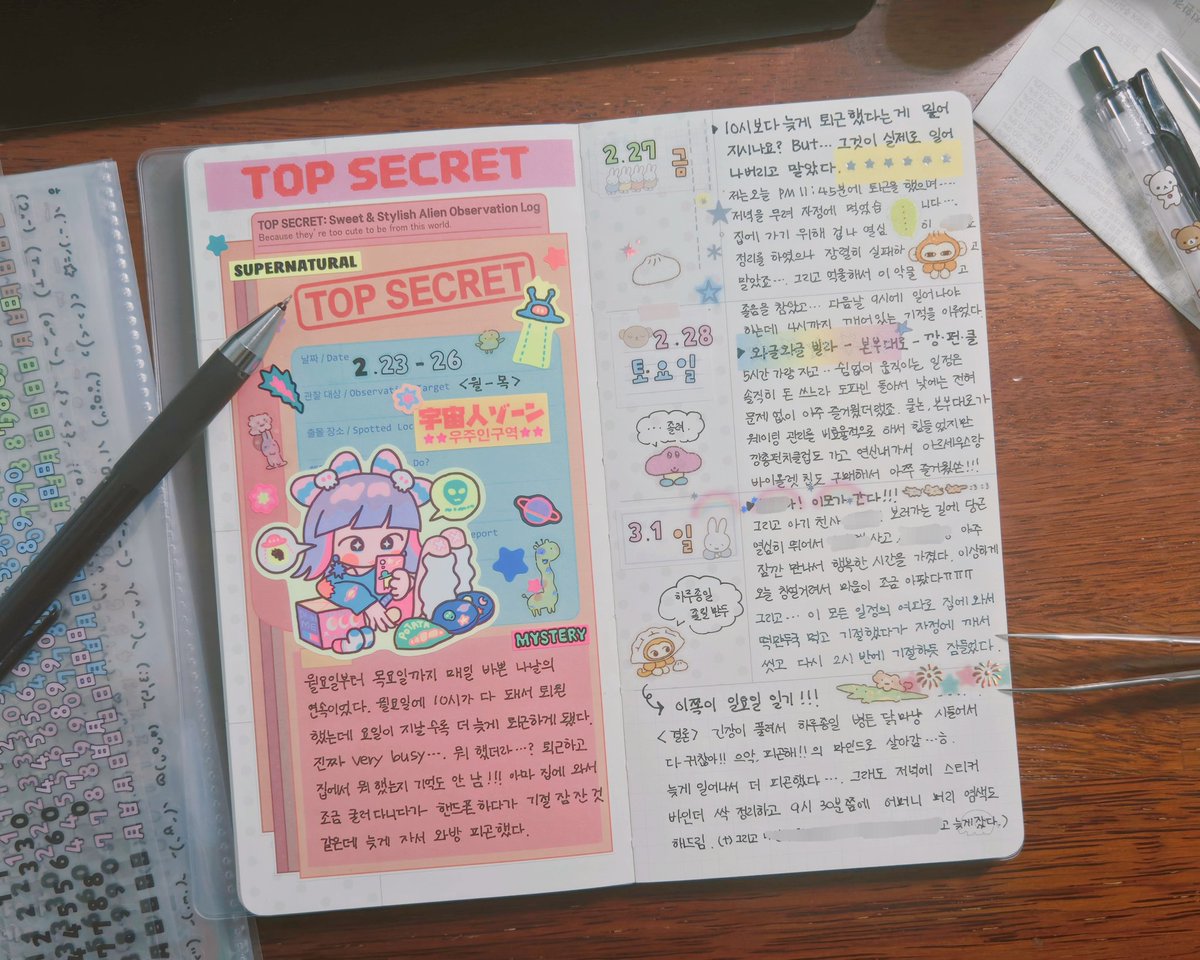 TOP SECRET
TOP SECRET: Sweet & Stylish Alien Observation Log
Because they're too cute to be from this world.
SUPERNATURAL
TOP SECRET
날짜 / Date
2.23 - 26
<월-목>
관찰 대상 / Observation Target
宇宙人ゾーン
우주인구역
출몰 장소 / Spotted Loc
Do?
eport
MYSTERY
월요일부터 목요일까지 매일 바쁜 나날의
연속이었다. 월요일에 10시가 다 돼서 퇴원
했는데 요일이 지날수록 더 늦게 퇴근하게 됐다.
진짜 very busy.... 뭐 했더라...? 퇴근하고
집에서 뭐 했는지 기억도 안 남!!! 아마 집에 와서
조금 굴러다니다가 핸드폰 하다가 기절 잠 잔 것
같은데 늦게 자서 와방 피곤했다.
2.27 금
10시보다 늦게 퇴근했다는게 믿어
지시나요? But... 그것이 실제로 일어
나버리고 말았다.
저는 오늘 PM 11:45분에 퇴근을 했으며....
저녁을 무려 자정에 먹었습 니다...
집에 가기 위해 겁나 열심 히
정리를 하였으나 장렬히 실패하고
말았죠.... 그리고 억울해서 이 악물고
졸음을 참았고... 다음날 9시에 일어나야
하는데 4시까지 깨어있는 기적을 이루었다.
2.28
토요일
와글와글 빌라 - 본부대로 - 깡·펀·클
5시간 가량 자고.. 쉼없이 움직이는 일정은
솔직히 돈 쓰느라 도파민 돌아서 낮에는 전혀
문제 없이 아주 즐거웠더랬죠. 물론, 본부대로가
웨이팅 관리를 비효율적으로 해서 힘들었지만
깡총펀치클럽도 가고 연신내가서 아르세우스랑
바이올렛 칩도 구매해서 아주 즐거웠슨!!!
...졸려.
3.1 일
아! 이모가 간다!!!
그리고 아기 천사 보러가는 길에 당근
열심히 뛰어서 사고, 아주
잠깐 만나서 행복한 시간을 가졌다. 이상하게
오늘 칭얼거려서 마음이 조금 아팠다ㅠㅠㅠ
그리고... 이 모든 일정의 여파로 집에 와서
떡만두국 먹고 기절했다가 자정에 깨서
씻고 다시 2시 반에 기절하듯 잠들었다.
하루종일
졸린 만두
이쪽이 일요일 일기!!!
<결론> 긴장이 풀려서 하루종일 병든 닭마냥 시들어서
다 귀찮아!! 으악, 피곤해!!의 마인드로 살아감...ㅎ.
늦게 일어나서 더 피곤했다.... 그래도 저녁에 스티커
바인더 싹 정리하고 9시 30분쯤에 어머니 머리 염색도
해드림. (+) 그리고 고 늦게잤다.)